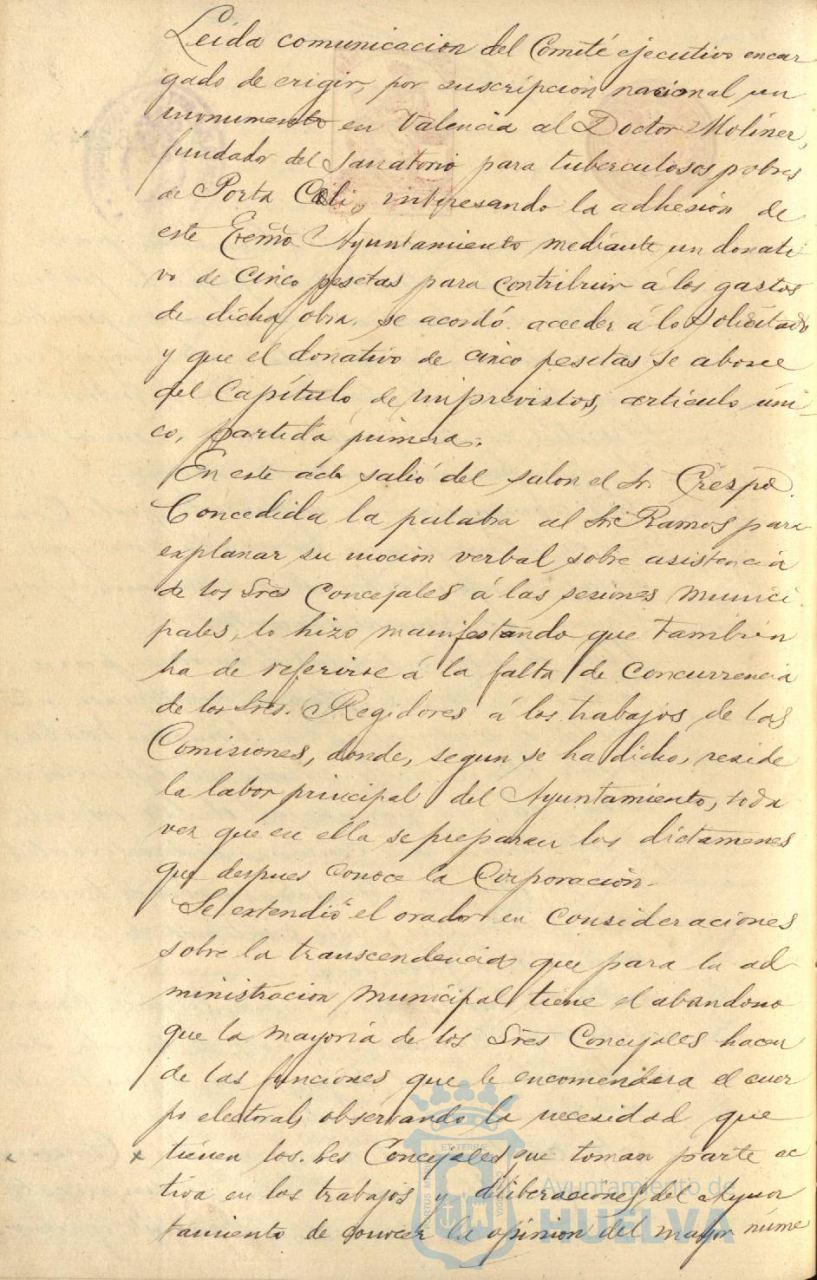 Leida comunicacion del Comité ejecutivo encar
gado de erigir, por suscripcion nacional un
monumento en Valencia al Doctor Moliner,
fundador del Sanatorio para tuberculosos pobres
de Porta Celi, interesando la adhesión de
este Excmo Ayuntamiento mediante un donati
vo de cinco pesetas para contribuir á los gastos
de dicha obra, se acordó acceder á lo solicitado
y que el donativo de cinco pesetas se abone
del Capítulo de imprevistos, artículo úni-
co, partida primera.
En este acto salió del salon el Sr. Crespo.
Concedida la palabra al Sr. Ramos para
explanar su mocion verbal sobre asistencia
de los Sres Concejales á las sesiones munici
pales, lo hizo manifestando que tambien
ha de referirse á la falta de concurrencia
de los Sres. Regidores á los trabajos de las
Comisiones, donde, segun se ha dicho, reside
la labor principal del Ayuntamiento, toda
vez que en ella se preparan los dictamenes
que despues conoce la Corporación.
Se extendió el orador en consideraciones
sobre la transcendencia que para la ad-
ministracion municipal tiene el abandono
que la mayoría de los Sres Concejales hacen
de las funciones que le encomendara el cuer
po electoral, observando la necesidad que
tienen los Sres Concejales que toman parte ac
tiva en los trabajos y deliberaciones del Ayun
tamiento de conocer la opinion del mayor núme
Ayuntamiento de
HUELVA